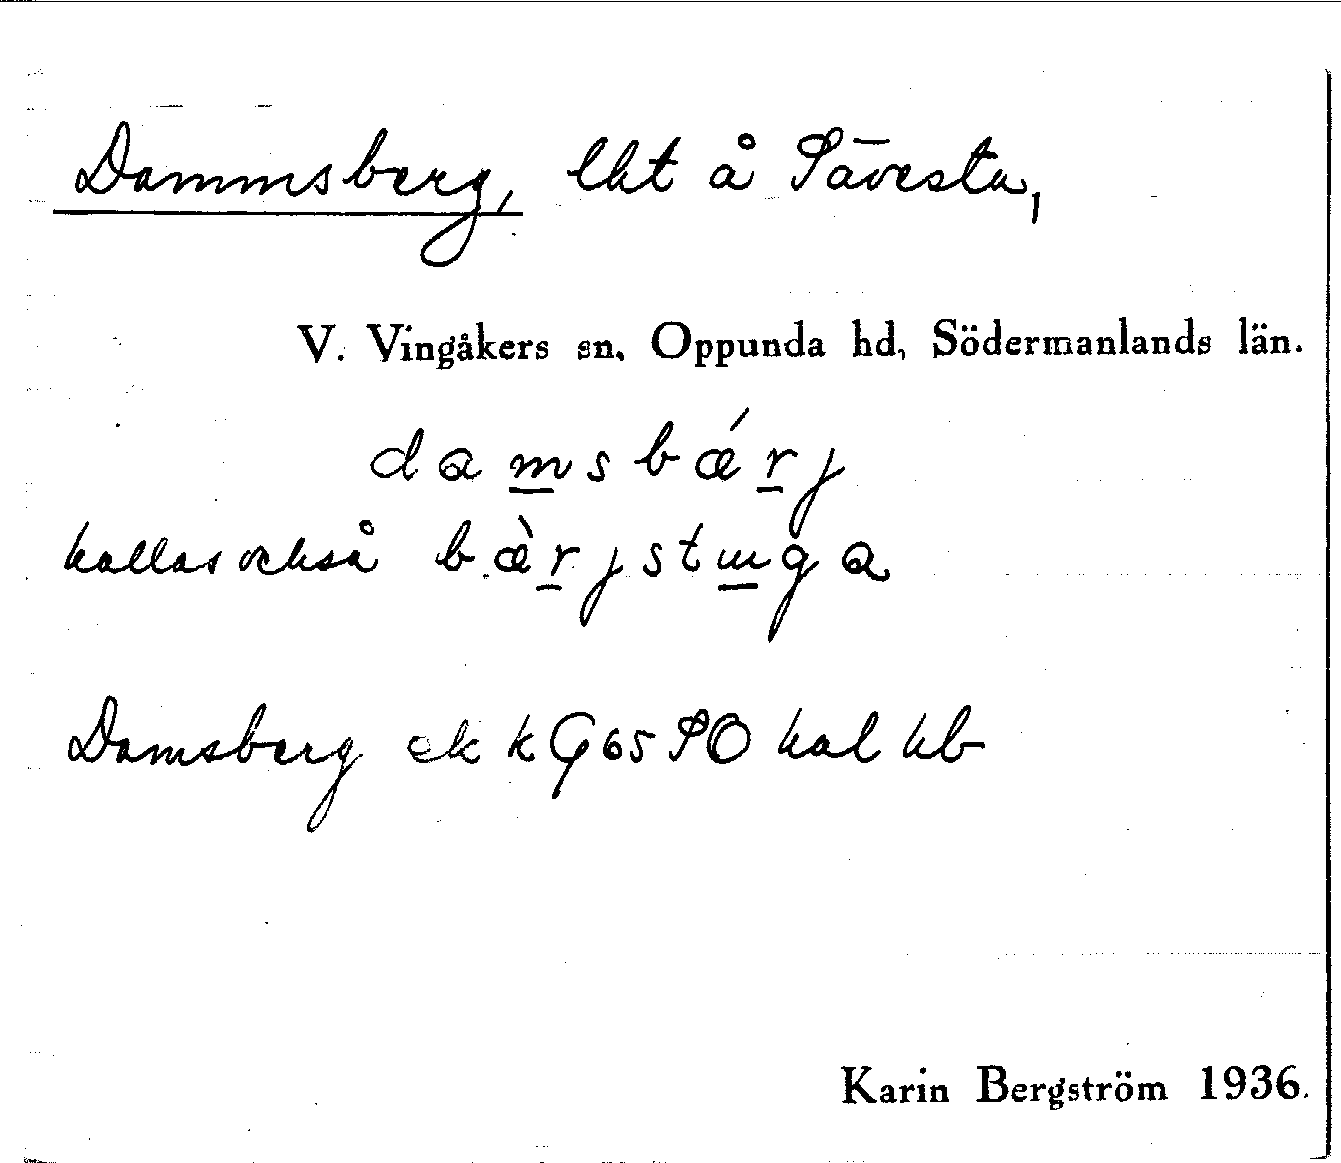 Dammsberg, lht å Sävesta,
V. Vingåkers sn, Oppunda hd, Södermanlands län.
damsbǽrj
kallas också bæ̀rjstuga
Damsberg ek k G65 SO hal hb
Karin Bergström 1936.